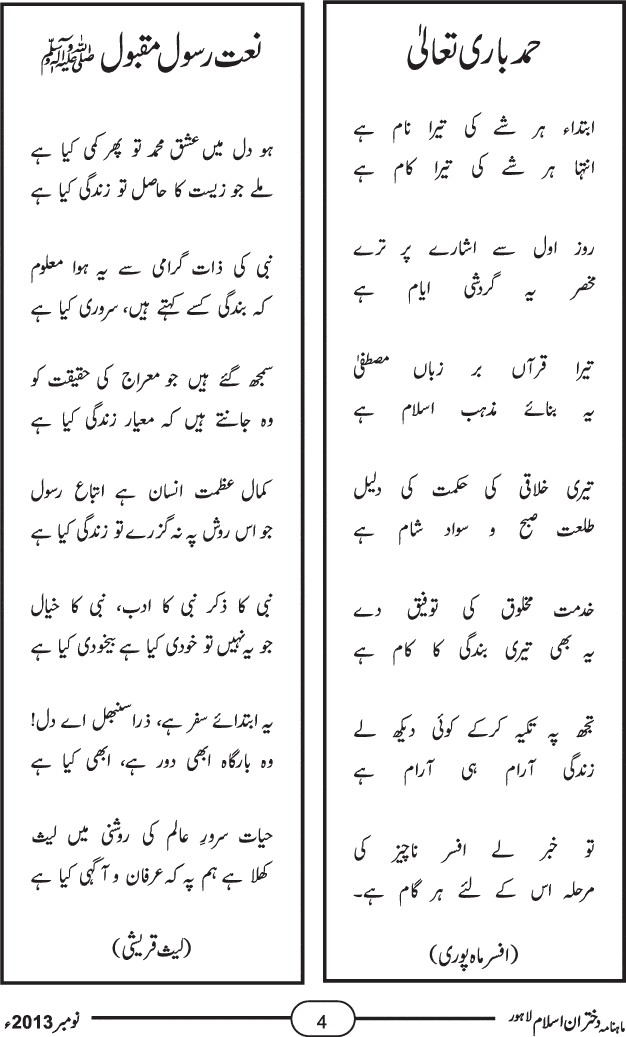 حمد باری تعالیٰ
ابتداء ہر شے کی تیرا نام ہے
انتہا ہر شے کی تیرا کام ہے
روز اول سے اشارے پر ترے
مخصر یہ گردشی ایام ہے
تیرا قرآں بر زباں مصطفیٰ
یہ بنائے مذہب اسلام ہے
تیری خلاقی کی حکمت کی دلیل
طلعت صبح و سواد شام ہے
خدمت مخلوق کی توفیق دے
یہ بھی تیری بندگی کا کام ہے
تجھ پہ تکیہ کرکے کوئی دیکھ لے
زندگی آرام ہی آرام ہے
تو خبر لے افسر ناچیز کی
مرحلہ اس کے لئے ہر گام ہے۔
(افسر ماہ پوری)
نعت رسول مقبول ﷺ
ہو دل میں عشق محمد تو پھر کمی کیا ہے
ملے جو زیست کا حاصل تو زندگی کیا ہے
نبی کی ذات گرامی سے یہ ہوا معلوم
کہ بندگی کسے کہتے ہیں، سروری کیا ہے
سمجھ گئے ہیں جو معراج کی حقیقت کو
وہ جانتے ہیں کہ معیار زندگی کیا ہے
کمال عظمت انسان ہے اتباع رسول
جو اس روش پہ نہ گزرے تو زندگی کیا ہے
نبی کا ذکر نبی کا ادب، نبی کا خیال
جو یہ نہیں تو خودی کیا ہے بیخودی کیا ہے
یہ ابتدائے سفر ہے، ذرا سنبھل اے دل!
وہ بارگاہ ابھی دور ہے، ابھی کیا ہے
حیات سرورِ عالم کی روشنی میں لیث
کھلا ہے ہم پہ کہ عرفان و آگہی کیا ہے
(لیث قریشی)
ماہنامہ دختران اسلام لاہور
4
نومبر 2013ء